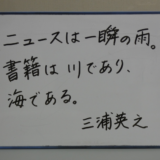 ニュースは一瞬の雨。
書籍は川であり、
海である。
三浦英之